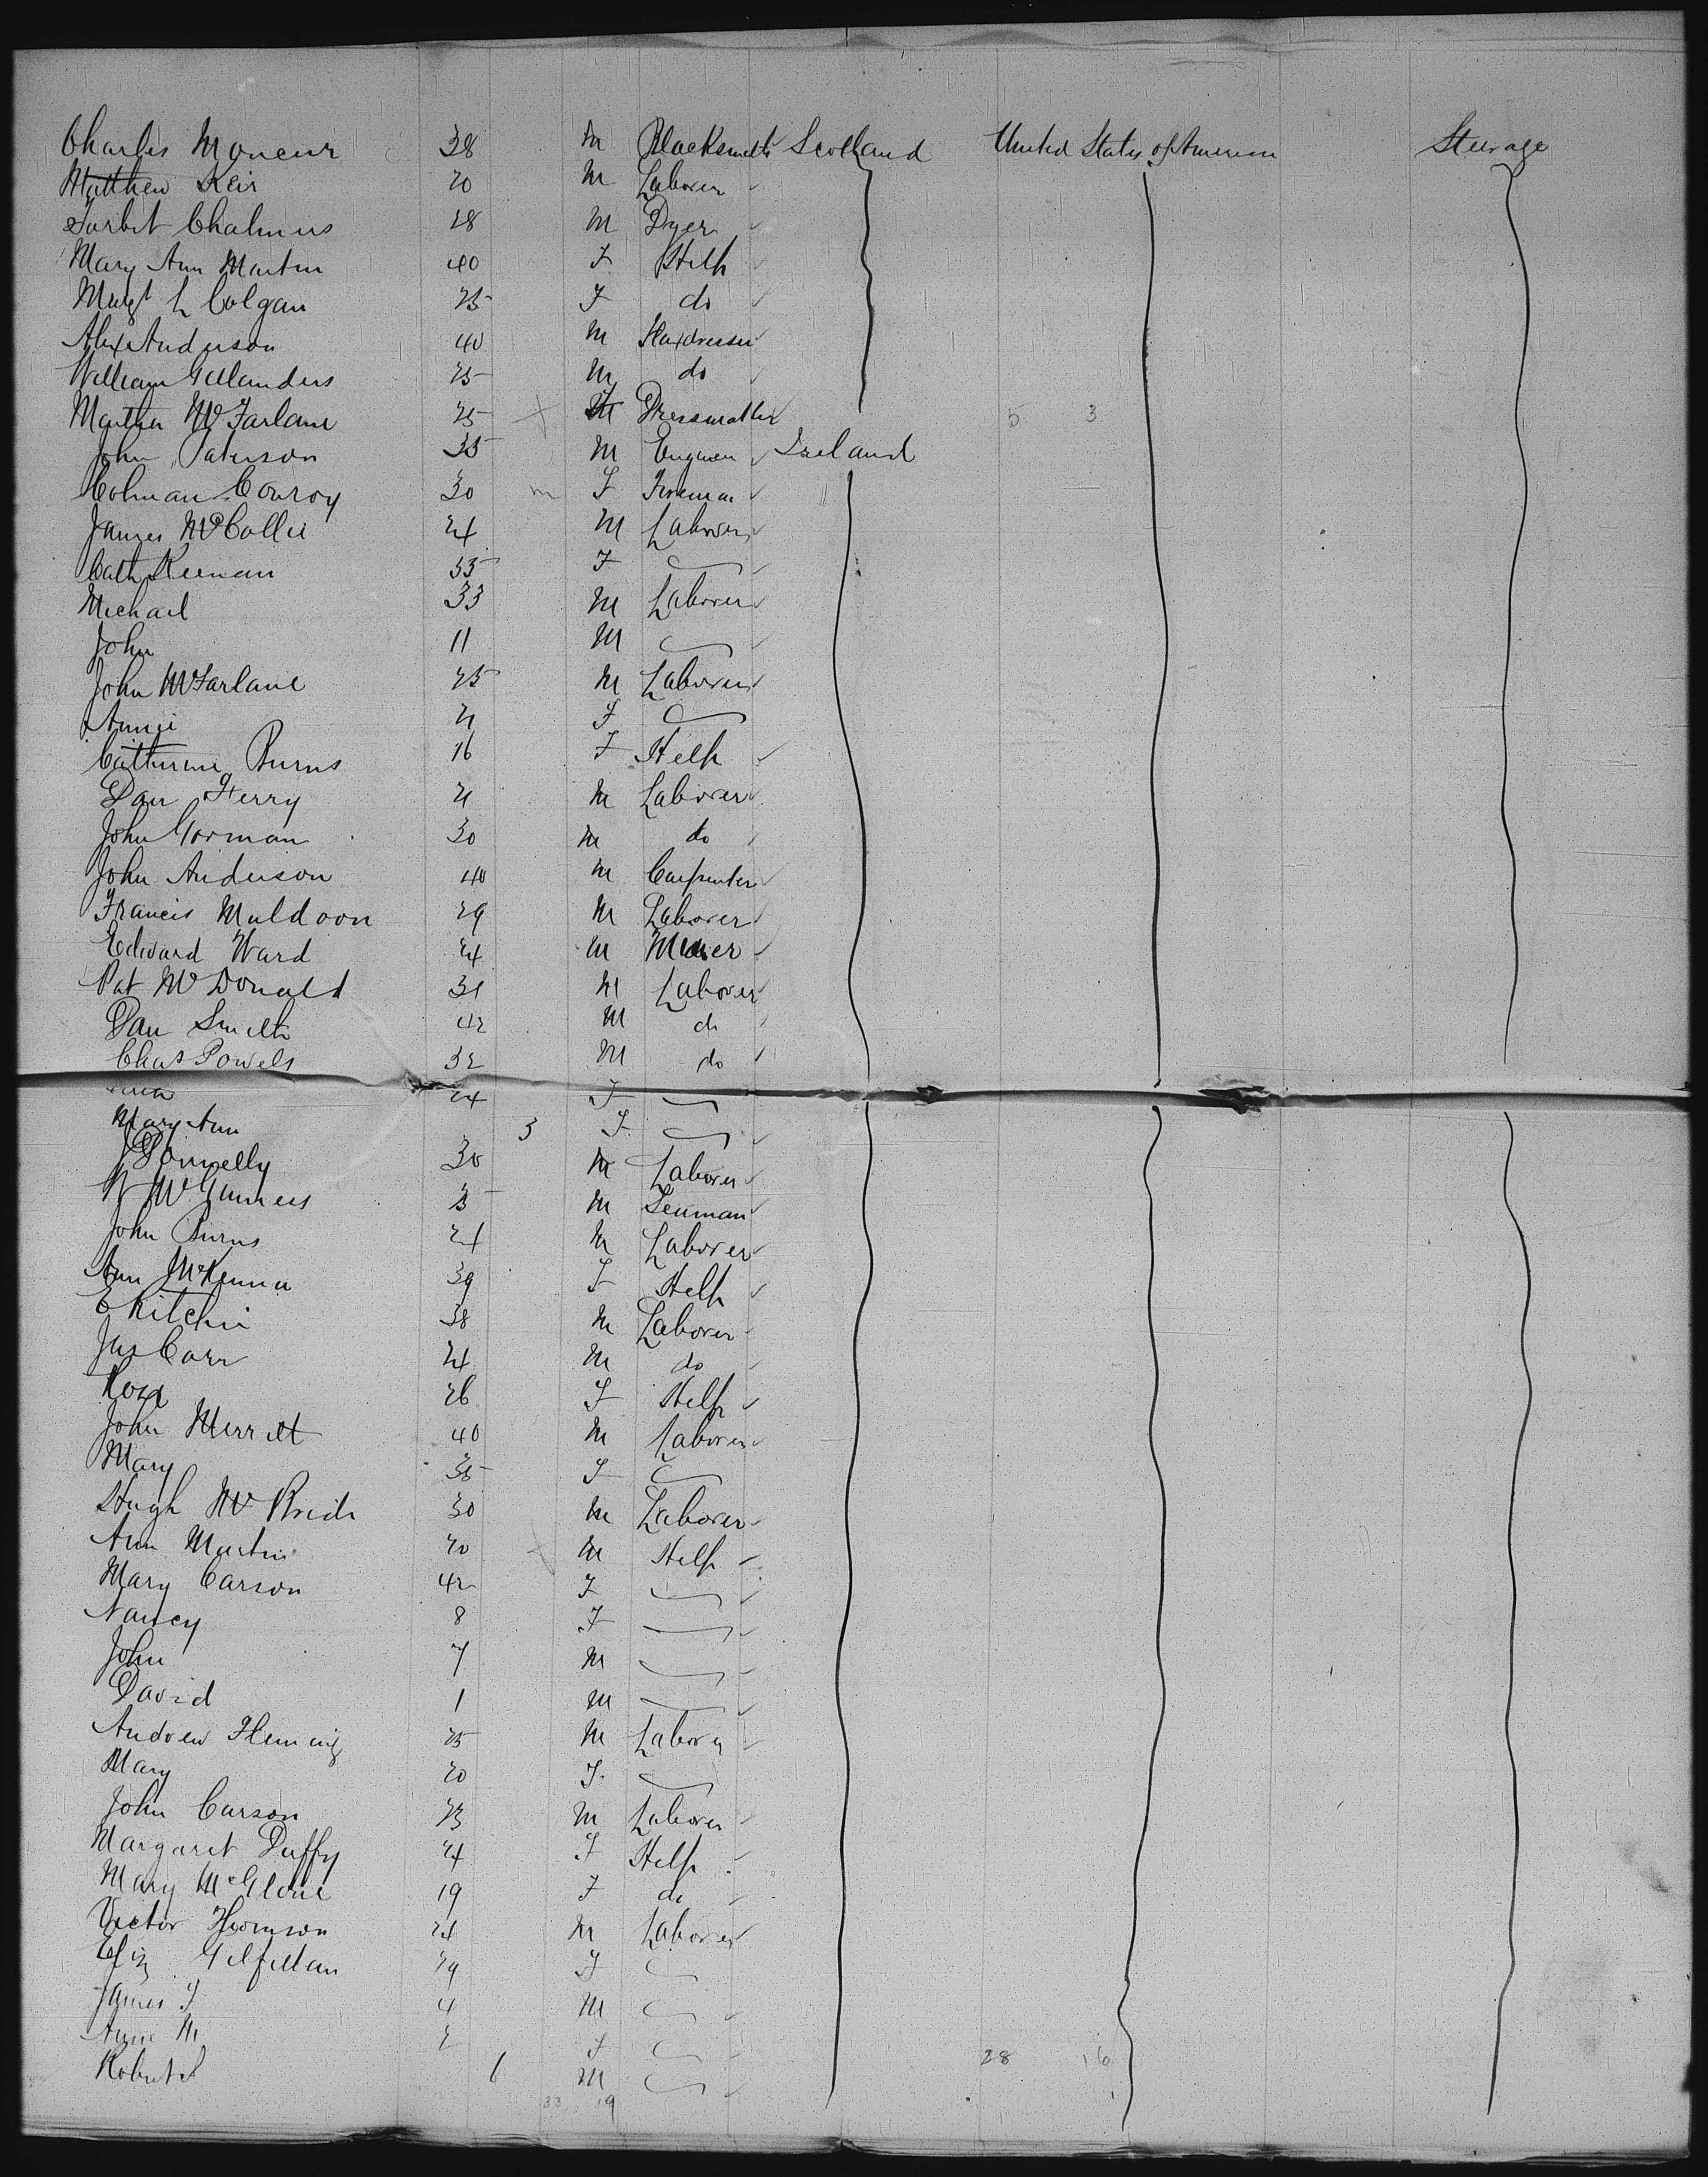 Charles Moncur 38 M Blacksmith Scotland United States of America Steerage
Matthew Keir 20 M Laborer
Torbit Chalmers 28 M Dyer
Mary Ann Martin 40 F Help
Margt L Colgan 25 F do
Alex Anderson 40 M Flaxdresser
William Gillanders 25 M do
Martha McFarlane 25 F Dressmaker 5 3
John Paterson 35 M Engineer Ireland
Colman Conroy 30 m F Fireman
James McCollie 24 M Laborer
Cath Keenan 35 F
Michael 33 M Laborer
John 11 M
John McFarlane 25 M Laborer
Annie 21 F
Catherine Burns 16 F Help
Dan Ferry 21 M Laborer
John Gorman 30 M do
John Anderson 40 M Carpenter
Francis Muldoon 29 M Laborer
Edward Ward 24 M Miner
Pat McDonald 31 M Laborer
Dan Smith 42 M do
Chas Powels 32 M do
24 F
Mary Ann 3 F
J Donnelly 30 M Laborer
McGuiness M
John Burns 21 M Laborer
Ann McKenna 39 F Help
E Ritchie 38 M Laborer
Jas Carr 24 M do
Rose 26 F Help
John Merrilt 40 M Laborer
Mary 35 F
Hugh McBride 30 M Laborer
Ann Martin 20 M Help
Mary Carson 42 F
Nancy 8 F
John 7 M
David 1 M
Andrew Fleming 25 M Laborer
Mary 20 F
John Carson 23 M Laborer
Margaret Duffy 24 F Help
Mary McGlone 19 F do
Victor Thomson 24 M Laborer
Eliz Gilfillan 29 F
James F 4 M
Agnes M 2 F
Robert S 1 M 28 16
33 19